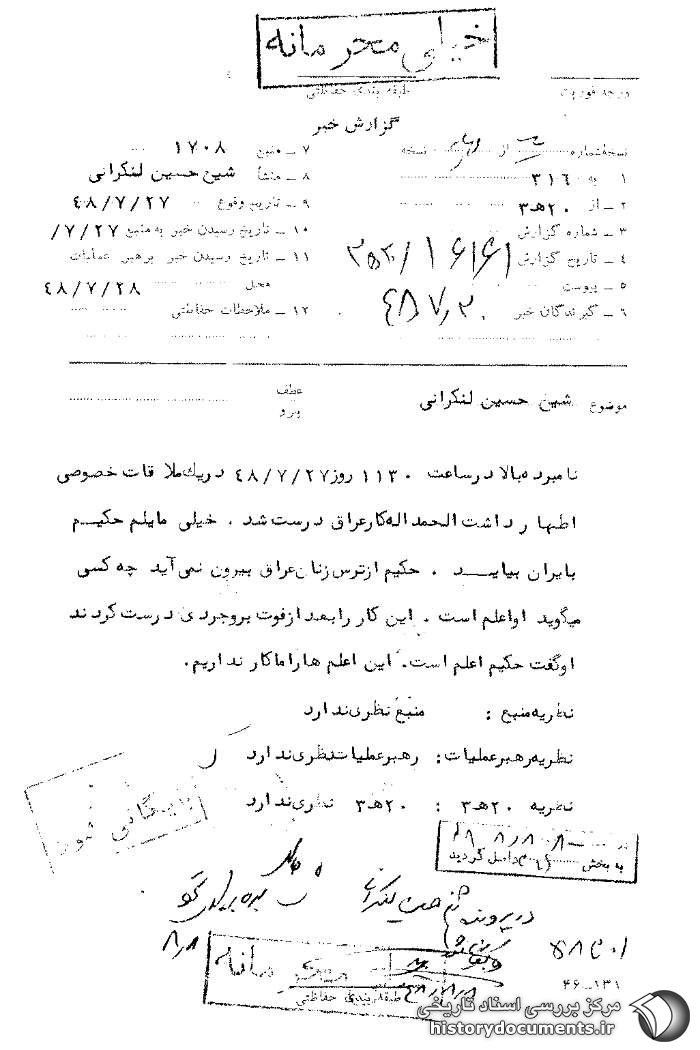 خیلی محرمانه
درجه فوریت
طبقه بندی حفاظتی
گزارش خبر
نسخه شماره از نسخه
۱ ـ به ۳۱۶
۲ ـ از ۲۰ه۳
۳ ـ شماره گزارش
۴ ـ تاریخ گزارش
۵ ـ پیوست
۶ ـ گیرندگان خبر
۷ ـ منبع ۱۷۰۸
۸ ـ منشأ شیخ حسین لنکرانی
۹ ـ تاریخ وقوع ۴۸/۷/۲۷
۱۰ ـ تاریخ رسیدن خبر به منبع ۷/۲۷/
۱۱ ـ تاریخ رسیدن خبر برهبر عملیات
محل ۴۸/۷/۲۸
۱۲ ـ ملاحظات حفاظتی
موضوع شیخ حسین لنکرانی
عطف
پیرو
نامبرده بالا در ساعت ۱۱۳۰ روز ۴۸/۷/۲۷ در یك ملاقات خصوصی
اظهار داشت الحمداله کار عراق درست شد . خیلی مایلم حکیم
بایران بیاید . حکیم از ترس زنان عراق بیرون نمی آید چه کسی
میگوید او اعلم است . این کار را بعد از فوت بروجردی درست کردند
او گفت حکیم اعلم است. این اعلم ها را ما کار نداریم.
نظریه منبع : منبع نظری ندارد
نظریه رهبر عملیات: رهبر عملیات نظری ندارد
نظریه ۲۰ه۳ : ۲۰ه۳ نظری ندارد
بایگانی شود
به بخش واصل گردید
در پرونده شیخ حسین لنکرانی
۸/۸
محرمانه
طبقه بندی حفاظتی
۴۶-۱۳۱
مرکز بررسی اسناد تاریخی
historydocuments.ir